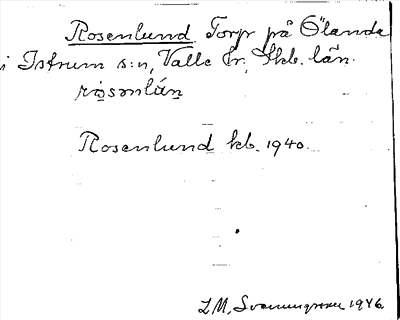 Rosenlund Torp på Ölanda
i Istrum s:n, Valle hr, Skb. län.
Rosenlund kb. 1940.
1946.